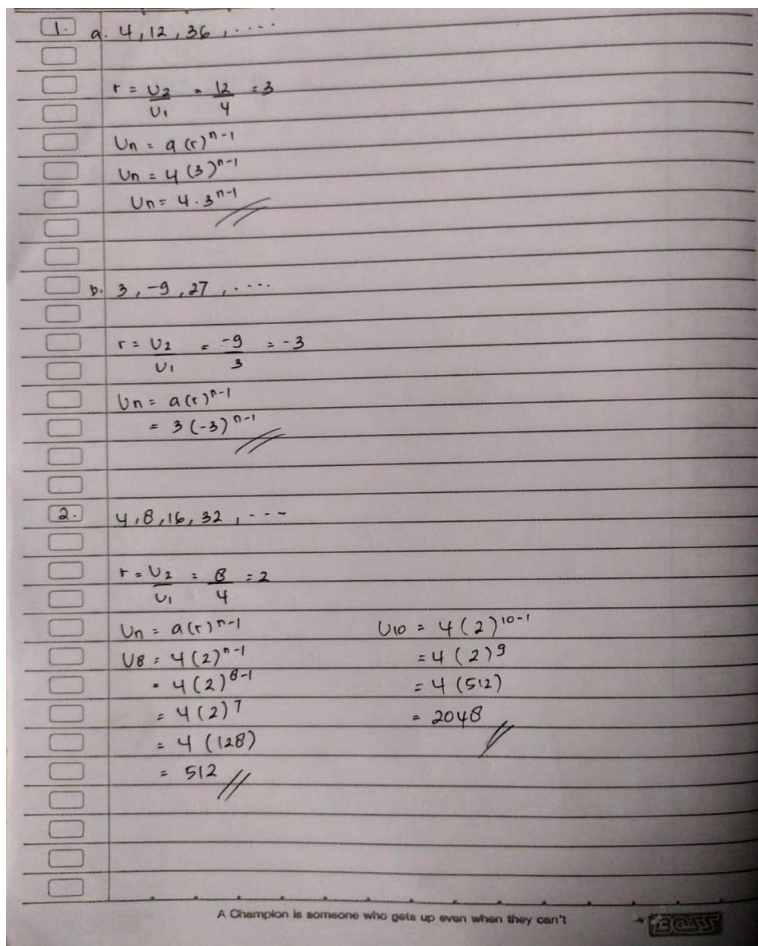 1. a. 4, 12, 36, ....
r = U2/U1 = 12/4 = 3
Un = a(r)^n-1
Un = 4(3)^n-1
Un = 4 . 3^n-1
b. 3, -9, 27, ....
r = U2/U1 = -9/3 = -3
Un = a(r)^n-1
= 3(-3)^n-1
2. 4, 8, 16, 32, ---
r = U2/U1 = 8/4 = 2
Un = a(r)^n-1
U8 = 4(2)^n-1
= 4(2)^8-1
= 4(2)^7
= 4 (128)
= 512
U10 = 4(2)^10-1
= 4(2)^9
= 4(512)
= 2048
A Champion is someone who gets up even when they can't
BOSS